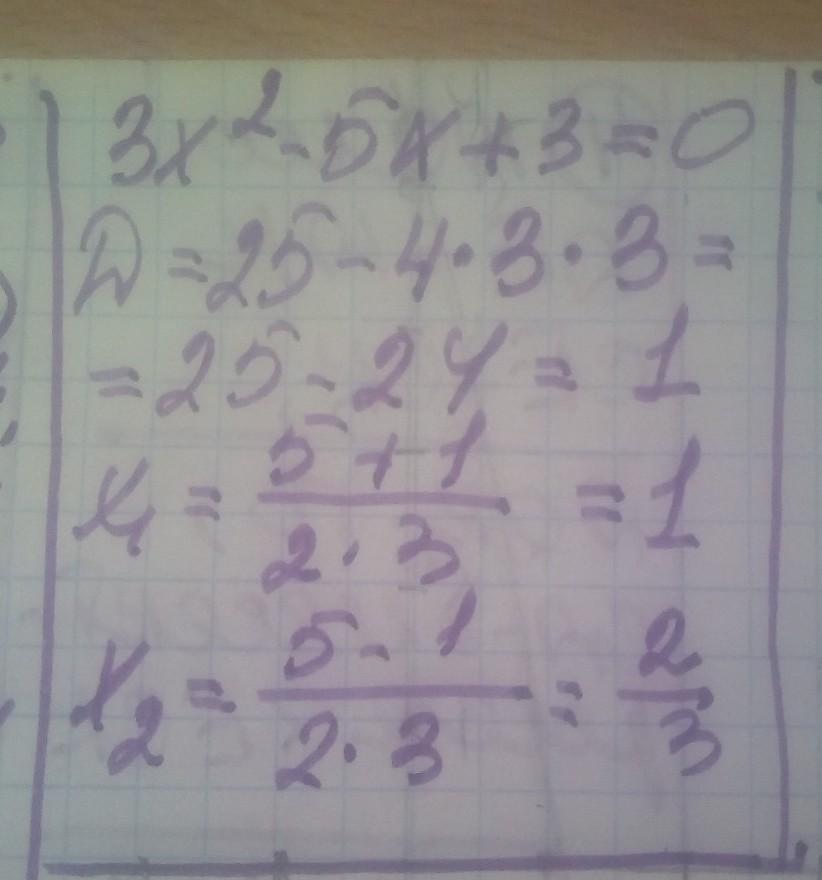 3x² - 5x + 3 = 0
D = 25 - 4 · 3 · 3 =
= 25 - 24 = 1
x₁ = (5 + 1)/(2 · 3) = 1
x₂ = (5 - 1)/(2 · 3) = 2/3